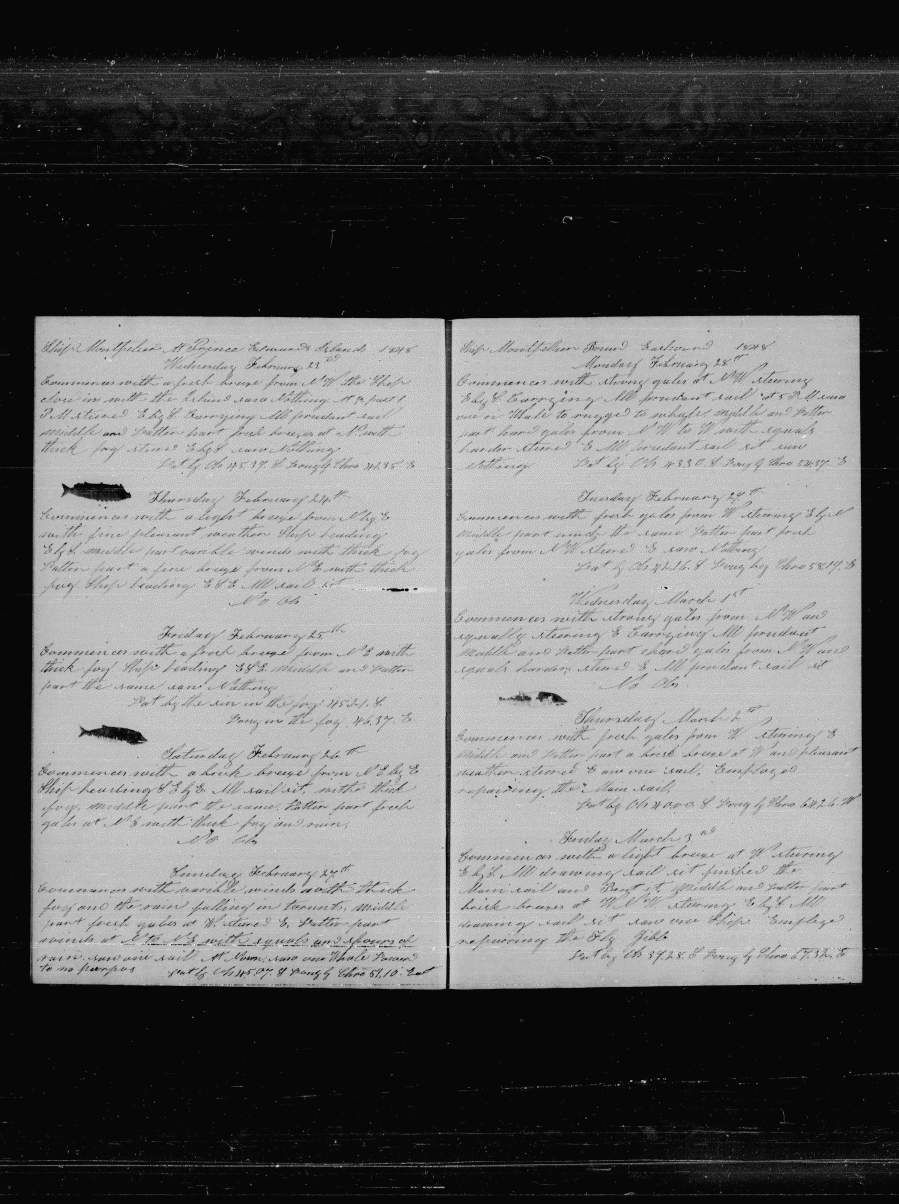 Ship Montpelier At Prince Edwards Islands 1848
Wednesday February 23rd
Commences with a fresh breeze from N W the Ship
close in with the Island saw Nothing At past 1
P.M steered E by S Carrying All prudent sail
middle and Latter part fresh breezes at N with
thick fog steered E by S saw Nothing
Lat by Ob 45.37. S Long by Chro 42.35. E
Thursday February 24th
Commences with a light breeze from N by E
with fine pleasant weather Ship heading
E by S middle part varible winds with thick fog
Latter part a fine breeze from N E with thick
fog Ship heading E S E All sail set
No Ob
Friday February 25th
Commences with a fresh breeze from N E with
thick fog Ship heading E S E Middle and Latter
part the same saw Nothing
Lat by the sun in the fog 45.21. S
Long in the fog. 46.37. E
Saturday February 26th
Commences with a brisk breeze from N E by E
Ship heading S E by E All sail set, with thick
fog, middle part the same, Latter part fresh
gales at N E with thick fog and rain,
No Ob
Sunday February 27th
Commences with varible winds with thick
fog and the rain falling in torrents, Middle
part fresh gales at W. steered E, Latter part
winds at N N E with squals and spours of
rain saw one sail At Noon saw one Whale Lowered
to no purpos Lat by Ob 45.07 S Long by Chro 51.10. East
Ship Montpelier Bound Eastward 1848
Monday February 28th
Commences with strong gales at N W steering
E by S Carrying All prudent sail at 5 P M saw
one Whale to rugged to whale, middle and Latter
part hard gales from N W to W with squals
harder steered E All prudent sail set saw
Nothing Lat by Ob 43.30. S Long by Chro 54.37. E
Tuesday February 29th
Commences with fresh gales from W steering E by N
Middle part much the same Latter part fresh
gales from N W steered E saw Nothing
Lat by Ob 42.16. S Long by Chro 58.19. E
Wednesday March 1st
Commences with strong gales from N W and
squally steering E Carrying All prudent
Middle and Latter part hard gales from N W and
squals harder, steered E All prudent sail set
No Obs
Thursday March 2th
Commences with fresh gales from W steering E
Middle and Latter part a brisk breeze at W and pleasant
weather steered E saw one sail, Employed
repairing the Main sail,
Lat by Ob 40.00. S Long by Chro 64.26. W
Friday March 3rd
Commences with a light breeze at W steering
E by S, All drawing sail set finished the
Main sail and Bent it Middle and Latter part
brisk breezes at W N W steering E by S All
drawing sail set saw one Ship Employed
repairing the Fly Gibb
Lat by Ob 39.28. S Long by Chro 67.32. E